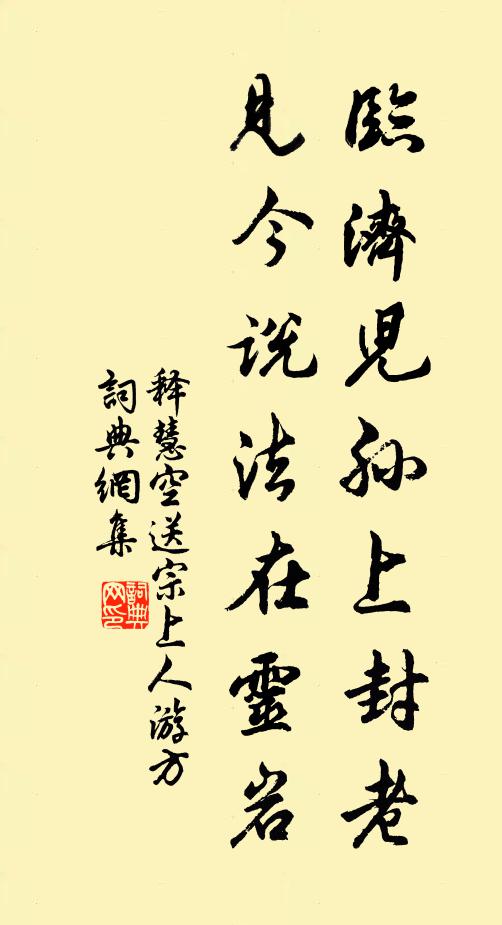 臨濟兒孫上封老
見今說法在靈岩
释慧空送宗上人游方
詞典網集
詞典网印